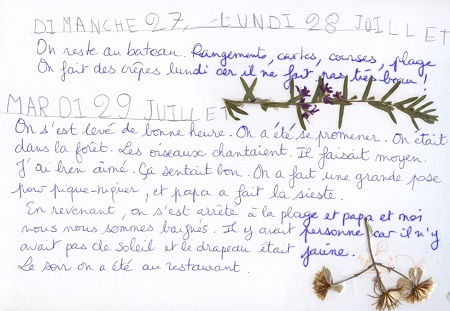 DIMANCHE 27, LUNDI 28 JUILLET
On reste au bateau. Rangements, cartes, courses, plage
On fait des crêpes lundi car il ne fait pas très beau !
MARDI 29 JUILLET
On s'est levé de bonne heure. On a été se promener. On était
dans la forêt. Les oiseaux chantaient. Il faisait moyen.
J'ai bien aimé. Ça sentait bon. On a fait une grande pose
pour pique-niquer, et papa a fait la sieste.
En revenant, on s'est arrêté à la plage et papa et moi
nous nous sommes baignés. Il y avait personne car il n'y
avait pas de soleil et le drapeau était jaune.
Le soir on a été au restaurant.